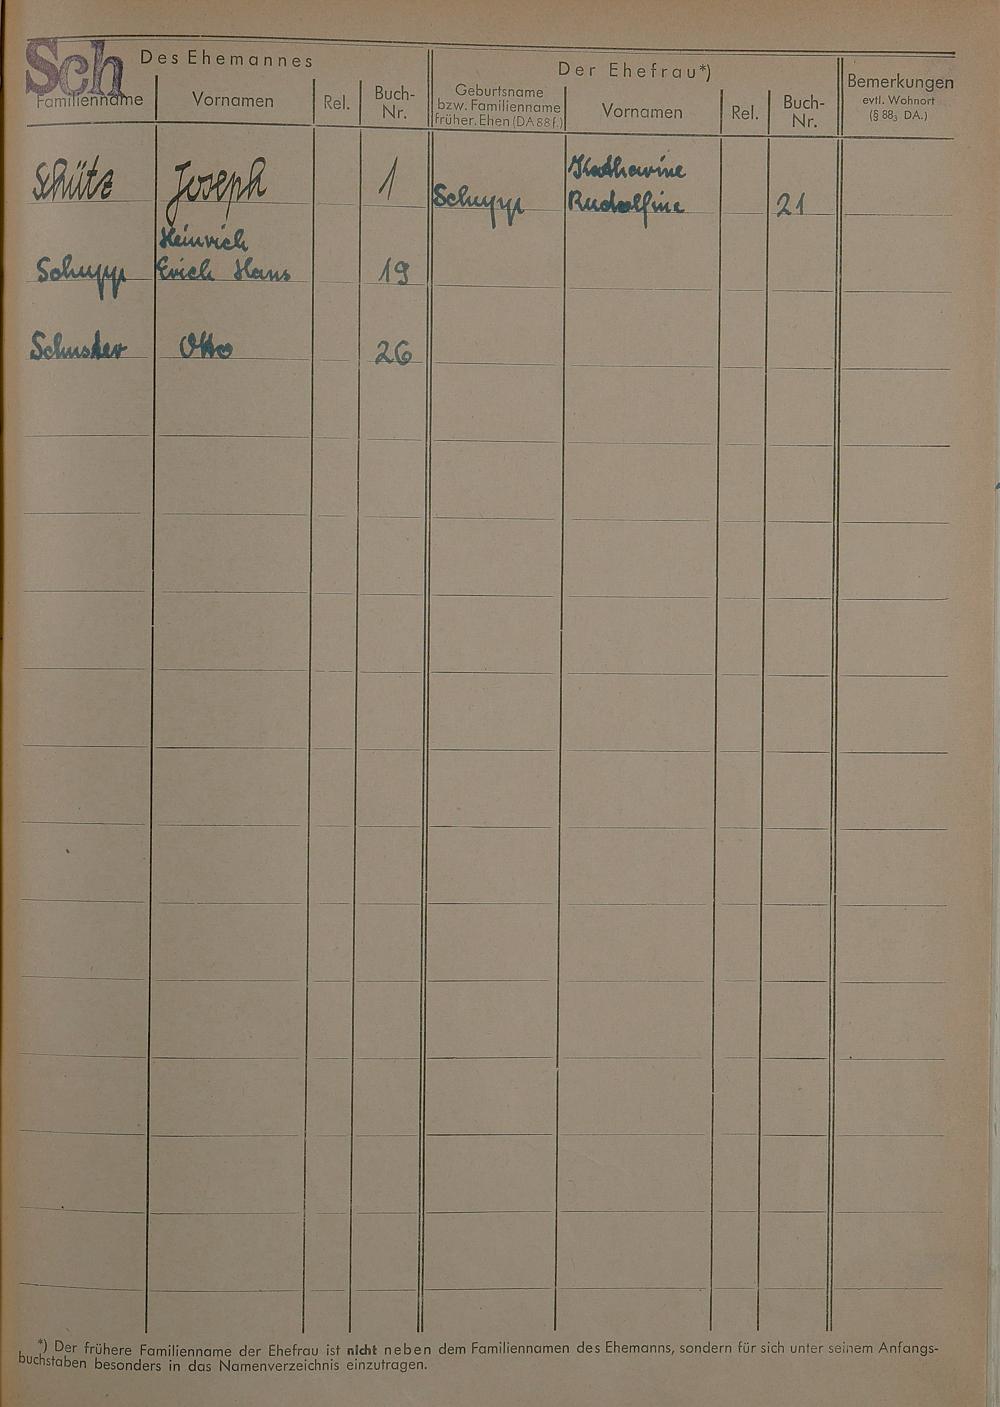 Sch
Des Ehemannes
Der Ehefrau*)
Familienname
Vornamen
Rel.
Buch-
Nr.
Geburtsname
bzw. Familienname
früher. Ehen (DA 88 f.)
Vornamen
Rel.
Buch-
Nr.
Bemerkungen
evtl. Wohnort
(§ 88₃ DA.)
Schütz Joseph 1
Katharine
Schupp Rudolfine 21
Heinrich
Schupp Erich Hans 19
Schuster Otto 26
*) Der frühere Familienname der Ehefrau ist nicht neben dem Familiennamen des Ehemanns, sondern für sich unter seinem Anfangs-
buchstaben besonders in das Namenverzeichnis einzutragen.